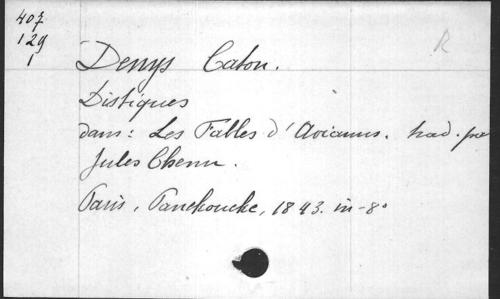 407
129
1
R
Denys Caton.
Distiques
dans: Les Fables d'Avianus. trad. par
Jules Chenu.
Paris, Panckoucke, 1843. in-8°